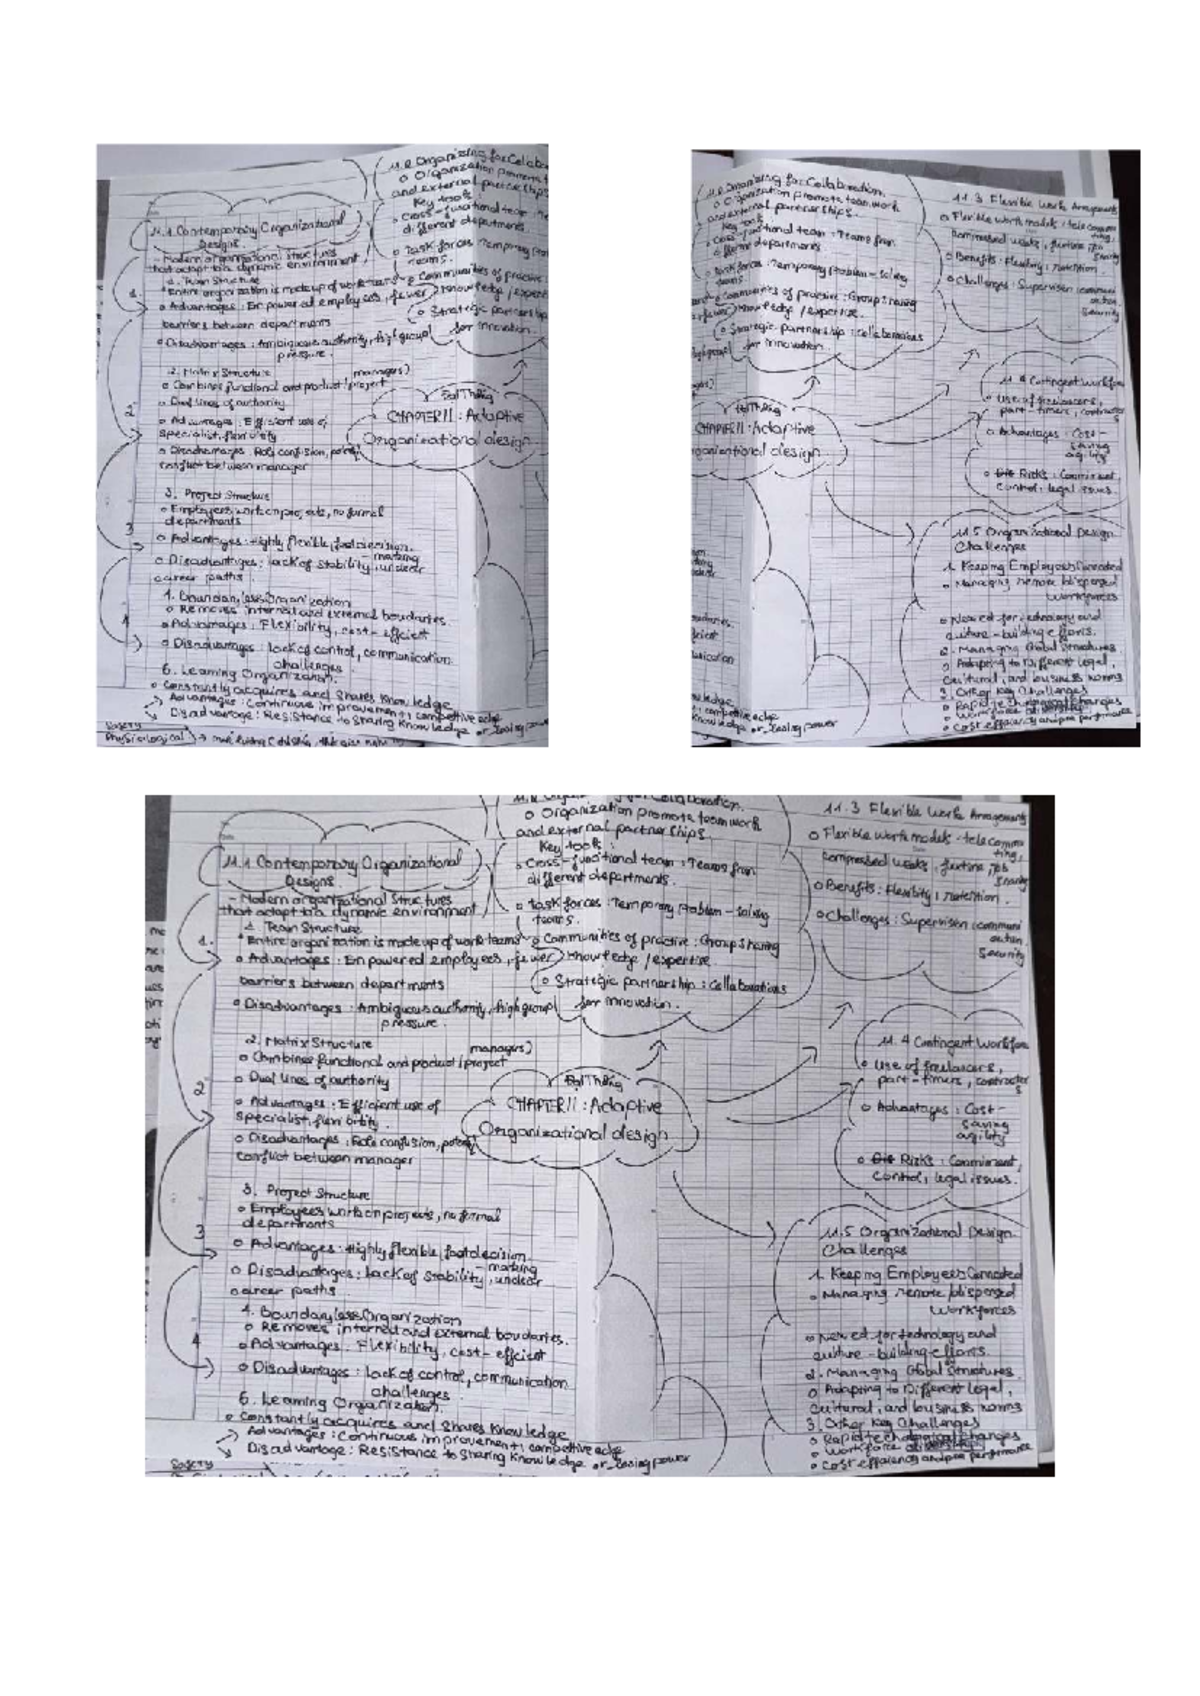 11.1 Contemporary Organizational
Designs.
- Modern organizational structures
that adapt to a dynamic environment
1. Team Structure
* Entire organization is made up of work teams
o Advantages : Empowered employees, fewer
barriers between departments
o Disadvantages : Ambiguous authority, high group
pressure.
2. Matrix Structure
managers)
o Combines functional and product/project
o Dual lines of authority
o Advantages : Efficient use of
specialist, flexibility.
o Disadvantages : Role confusion,
conflict between manager
3. Project Structure
o Employees work on projects, no formal
departments
o Advantages : Highly flexible, fast decision.
- making
o Disadvantages : lack of stability, unclear
career paths.
4. Boundaryless Organization
o Removes internal and external boudaries.
o Advantages : Flexibility, cost-efficient
o Disadvantages : lack of control, communication
challenges.
6. Learning Organization.
o Constantly acquires and shares knowledge
Advantages : Continuous improvement, competitive edge
Disadvantage : Resistance to sharing knowledge or losing power
1.
2
3
4
11.2 Organizing for Collaboration.
o Organization promote teamwork
and external partnerships.
Key tools :
o Cross-functional team : Teams from
different departments.
o Task forces : Temporary problem-solving
teams.
o Communities of practive : Group sharing
knowledge / expertise.
o Strategic partnership : Collaborations
for innovation.
CHAPTER 11 : Adaptive
Organizational design
11.3 Flexible Work Arragements
o Flexible work models : telecommu
ting,
compressed weeks,
sharing
o Benefits : Flexibility,
o Challenges : Supervision communi
cation.
Security
11.4 Contingent Workforce
o Use of freelancers,
part-timers, contractor
s
o Advantages : Cost-
saving
agility
o Risks : Commiment,
Control, legal issues.
11.5 Organizational Design
Challenges
1. Keeping Employees Connected
o Managing remote/dispersed
workforces
o for technology and
culture-building efforts.
2. Managing Global Structures.
o Adapting to Different legal,
cultural, and business norms
3. Other Key Challenges
o Rapid technological changes
o Workforce
o Cost efficiency and performance
Safety
Physiological